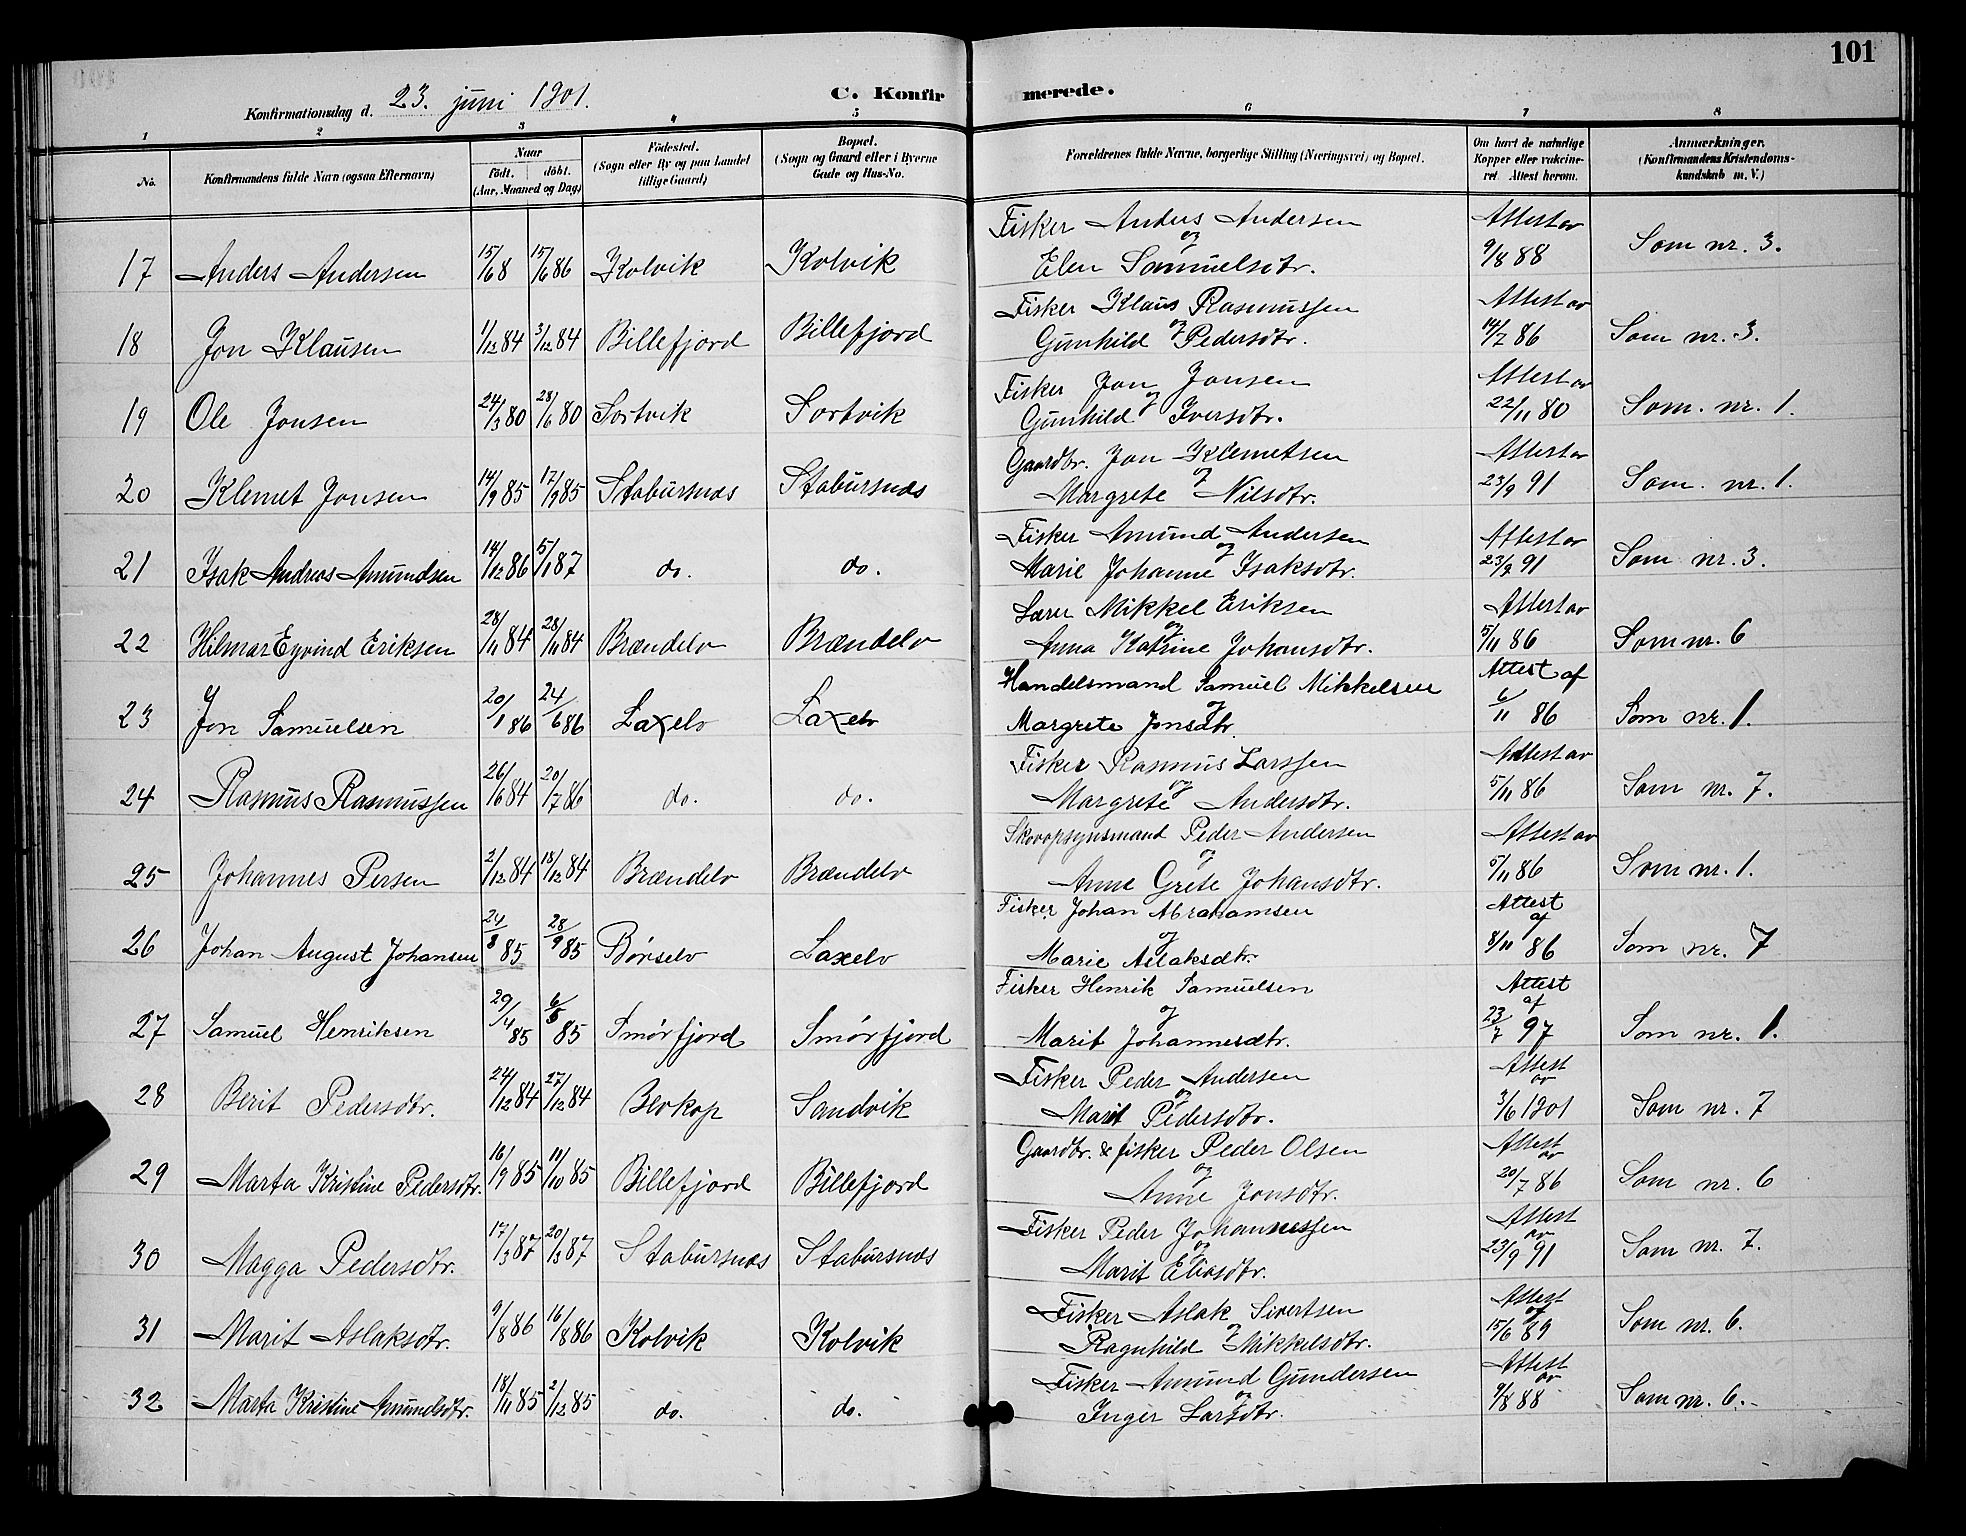 101
Konfirmationsdag d. 23. juni 1901.
C. Konfirmerede.
1 2 3 4 5 6 7 8
No.
Konfirmandens fulde Navn (ogsaa Efternavn)
Naar
födt. döbt.
(Aar, Maaned og Dag)
Födested.
(Sogn eller By og paa Landet
tillige Gaard)
Bopæl.
(Sogn og Gaard eller i Byerne
Gade og Hus-No.
Forældrenes fulde Navne, borgerlige Stilling (Næringsvei) og Bopæl.
Om havt de naturlige
Kopper eller vakcine-
ret. Attest herom.
Anmærkninger.
(Konfirmandens Kristendoms-
kundskab m. V.)
Fisker Anders Andersen Attest av
17 Anders Andersen 15/6 8 15/6 86 Kolvik Kolvik og Elen Samuelsdtr. 9/8 88 Som nr. 3.
Fisker Klaus Rasmussen Attest av
18 Jon Klausen 1/12 84 3/12 84 Billefjord Billefjord og Gunhild Pedersdtr. 14/7 86 Som nr. 3.
Fisker Jon Jonsen Attest av
19 Ole Jonsen 24/3 80 28/6 80 Sortvik Sortvik og Gunhild Iversdtr. 22/11 80 Som. nr. 1.
Gaardbr. Jon Klemetsen Attest av
20 Klemet Jonsen 14/9 85 17/9 85 Stabursnæs Stabursnæs og Margrete Nilsdtr. 23/9 91 Som. nr. 1.
Fisker Amund Andersen Attest av
21 Isak Andreas Amundsen 14/12 86 5/1 87 do. do. og Marie Johanne Isaksdtr. 23/9 91 Som nr. 3.
Lærer Mikkel Eriksen Attest av
22 Hilmar Eyvind Eriksen 28/11 84 28/11 84 Brændelv Brændelv og Anna Katrine Johansdtr. 5/11 86 Som nr. 6
Handelsmand Samuel Mikkelsen Attest af
23 Jon Samuelsen 20/1 86 24/6 86 Laxelv Laxelv og Margrete Jonsdtr. 6/11 86 Som nr. 1.
Fisker Rasmus Larssen Attest av
24 Rasmus Rasmussen 26/6 84 20/7 86 do. do. og Margrete Andersdtr. 5/11 86 Som nr. 7.
Skovopsynsmand Peder Andersen Attest av
25 Johannes Persen 2/12 84 18/12 84 Brændelv Brændelv og Anne Grete Johansdtr. 5/11 86 Som nr. 1.
Fisker Johan Abrahamsen Attest af
26 Johan August Johansen 24/8 85 28/9 85 Börselv Laxelv og Marie Aslaksdtr. 8/11 86 Som nr. 7
Fisker Henrik Samuelsen Attest af
27 Samuel Henriksen 29/4 85 85 Smörfjord Smörfjord og Marit Johannesdtr. 23/7 97 Som nr. 1.
Fisker Peder Andersen Attest av
28 Berit Pedersdtr. 24/12 84 27/12 84 Sandvik og Marit Pedersdtr. 3/6 1901 Som nr. 7
Gaardbr. & fisker Peder Olsen Attest av
29 Marta Kristine Pedersdtr. 16/9 85 11/10 85 Billefjord Billefjord og Anne Jonsdtr. 20/7 86 Som nr. 6
Fisker Peder Johannessen Attest av
30 Magga Pedersdtr. 17/3 87 20/3 87 Stabursnæs Stabursnæs og Marit Eliasdtr. 23/9 91 Som nr. 7.
Fisker Aslak Sivertsen Attest av
31 Marit Aslaksdtr. 9/8 86 16/8 86 Kolvik Kolvik og Ragnhild Mikkelsdtr. 15/6 89 Som nr. 6.
Fisker Amund Gundersen Attest av
32 Marta Kristine Amundsdtr. 18/11 85 2/12 85 do. do. og Inger Larsdtr. 9/8 88 Som nr. 6.